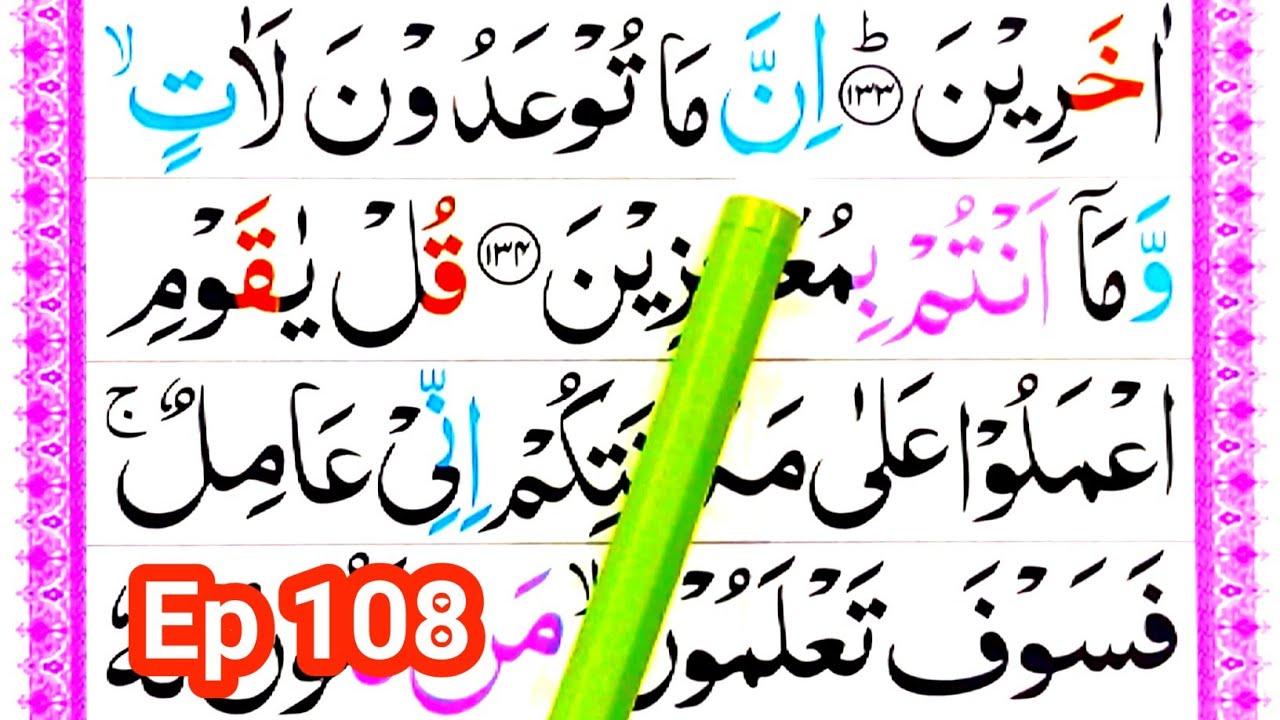 اٰخَرِيْنَ ؕ ﴿۱۳۳﴾ اِنَّ مَا تُوْعَدُوْنَ لَاٰتٍ ۙ
وَّ مَاۤ اَنْتُمْ بِمُعْجِزِيْنَ ﴿۱۳۴﴾ قُلْ يٰقَوْمِ
اعْمَلُوْا عَلٰى مَكَانَتِكُمْ اِنِّىْ عَامِلٌ ۚ
فَسَوْفَ تَعْلَمُوْنَ ۙ مَنْ تَكُوْنُ لَهٗ
Ep 108